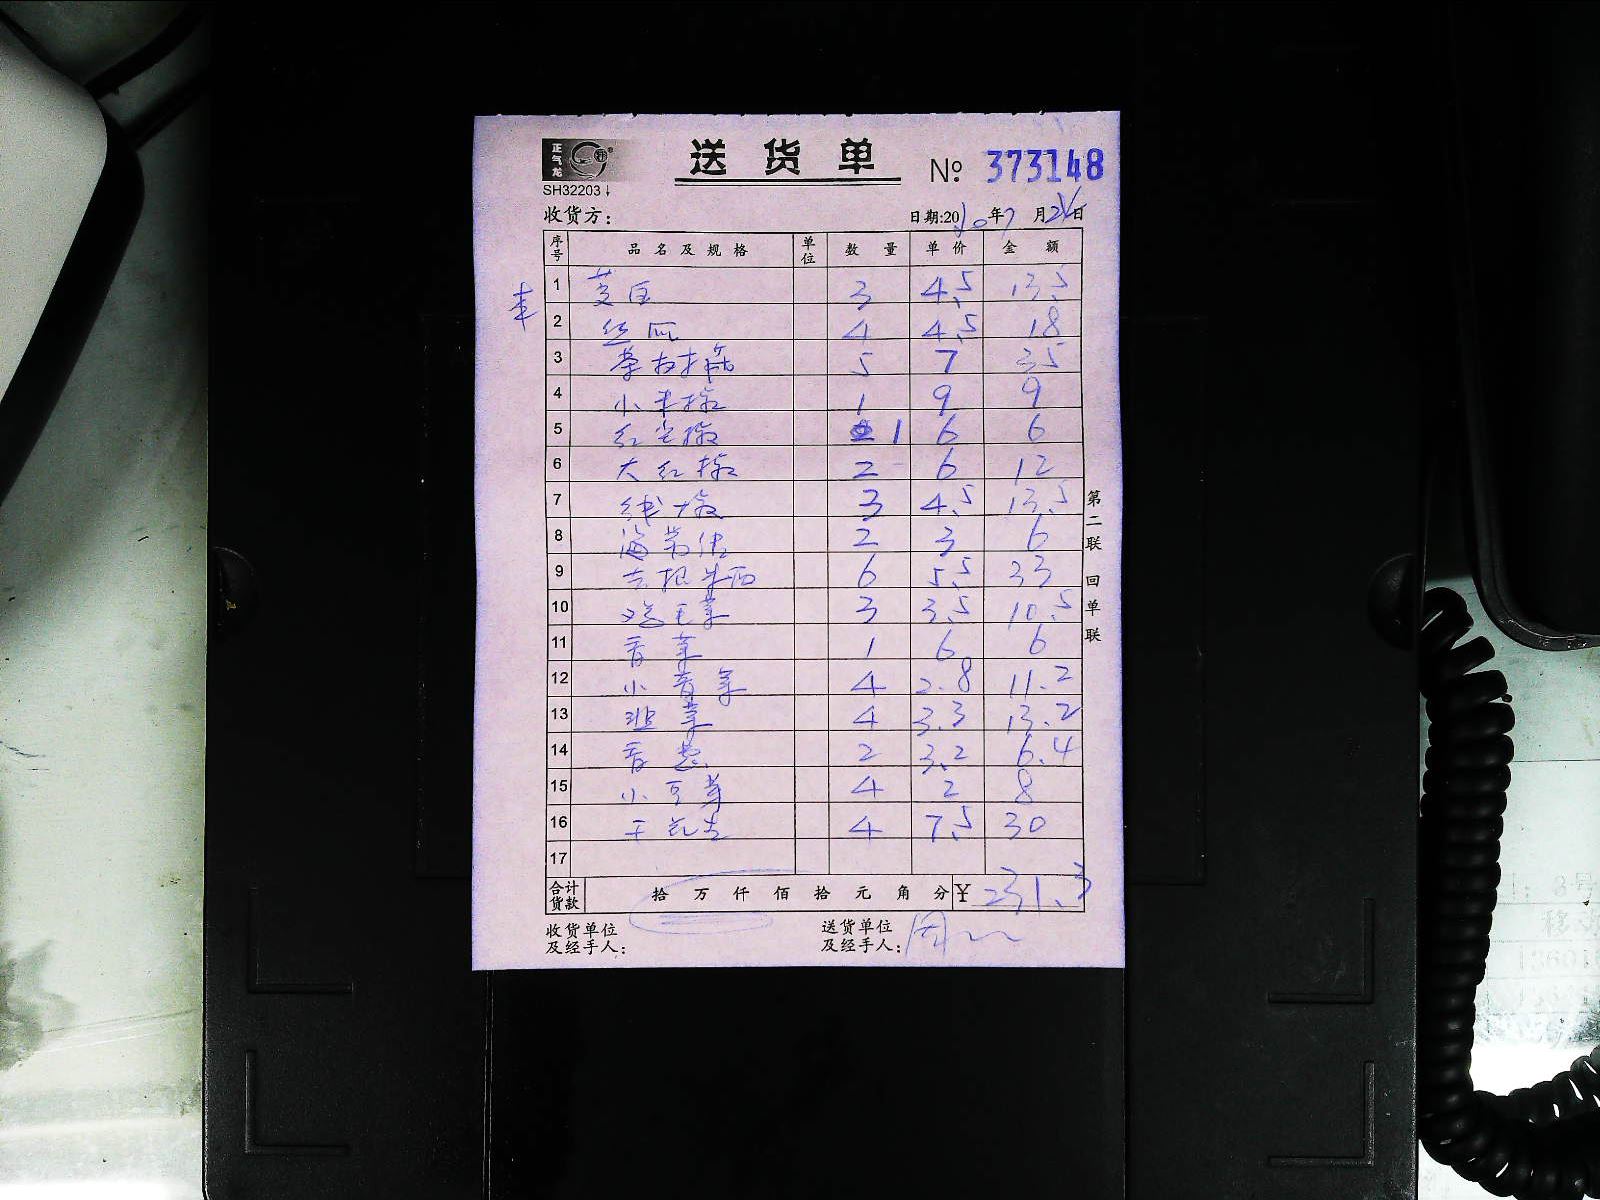 正气龙
SH32203↓
送货单 № 373148
收货方： 日期:20 年7月 日
序号 品名及规格 单位 数量 单价 金额
1 3 4.5 13.5
2 丝瓜 4 4.5 18
3 茶树菇 5 7 35
4 小米椒 1 9 9
5 红尖椒 1 6 6
6 大红椒 2 6 12
7 线椒 3 4.5 13.5
8 海带结 2 3 6
9 6 5.5 33
10 鸡毛菜 3 3.5 10.5
11 香菜 1 6 6
12 小青菜 4 2.8 11.2
13 韭菜 4 3.3 13.2
14 香葱 2 3.2 6.4
15 小豆芽 4 2 8
16 干花生 4 7.5 30
17
合计货款 拾万仟佰拾元角分 ¥ 231.3
收货单位及经手人： 送货单位及经手人：
第二联 回单联